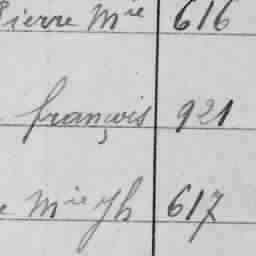 Pierre Mie 616
françois 921
Mie Jh 617